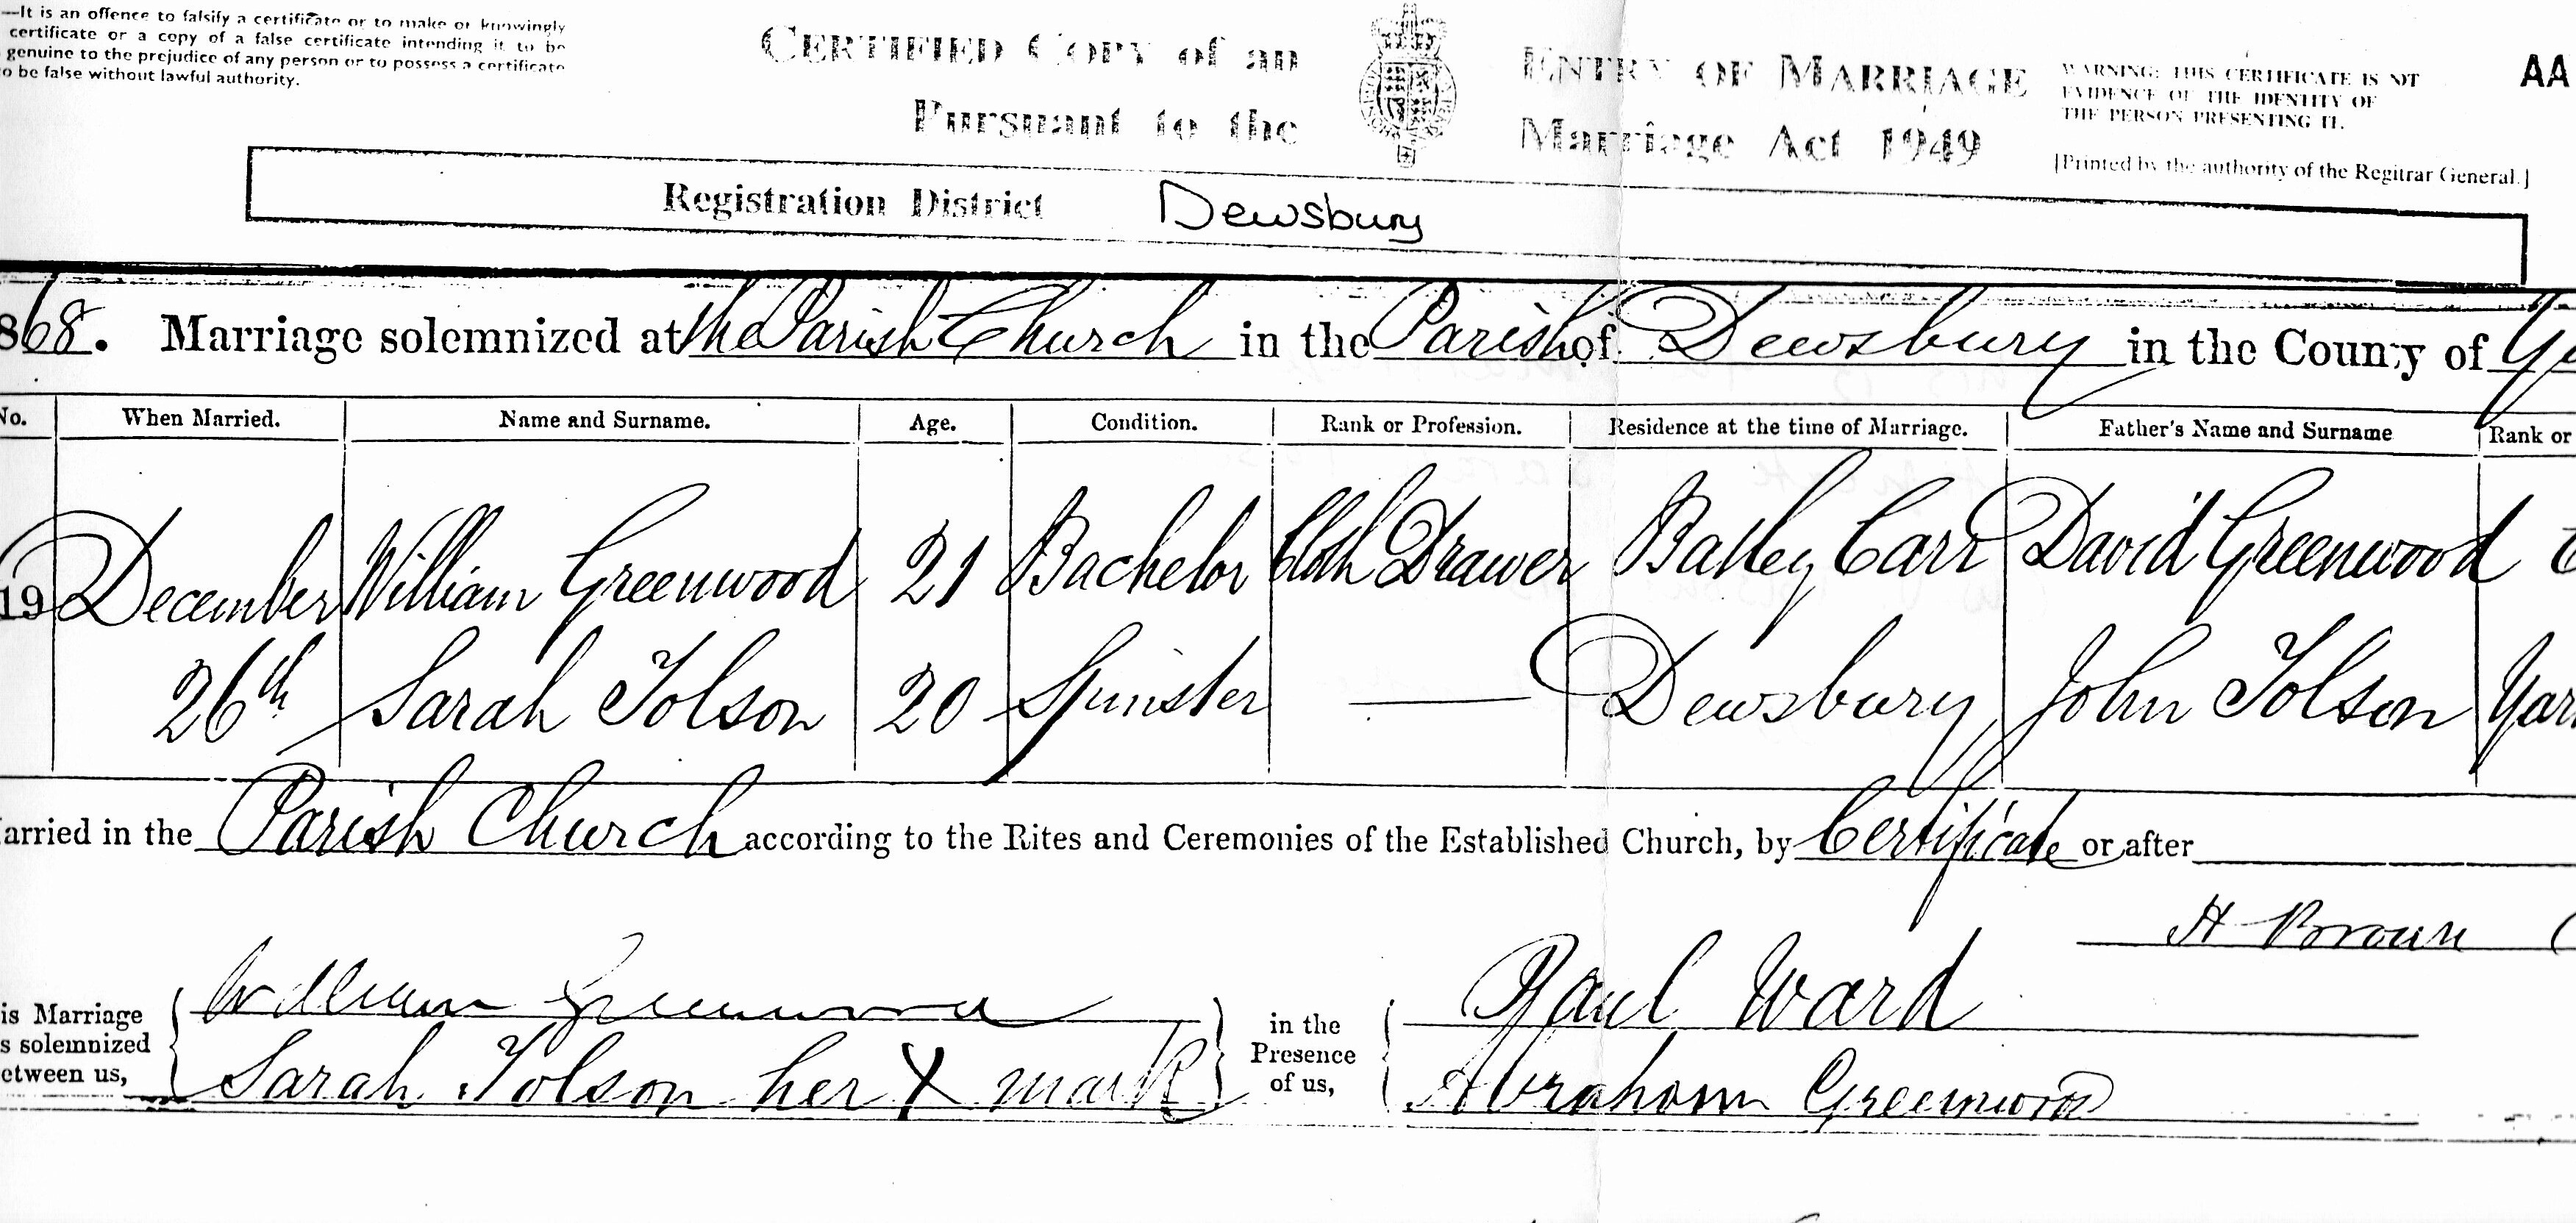 —It is an offence to falsify a certificate or to make or knowingly
certificate or a copy of a false certificate intending it to be
genuine to the prejudice of any person or to possess a certificate
o be false without lawful authority.
CERTIFIED COPY of an ENTRY OF MARRIAGE
Pursuant to the Marriage Act 1949
WARNING: THIS CERTIFICATE IS NOT
EVIDENCE OF THE IDENTITY OF
THE PERSON PRESENTING IT.
AA
[Printed by the authority of the Regitrar General.]
Registration District Dewsbury
868. Marriage solemnized at the Parish Church in the Parish of Dewsbury in the County of Yo
No. When Married. Name and Surname. Age. Condition. Rank or Profession. Residence at the time of Marriage. Father's Name and Surname Rank or
19 December William Greenwood 21 Bachelor Cloth Drawer Batley Carr David Greenwood
26th Sarah Tolson 20 Spinster — Dewsbury John Tolson Yar
arried in the Parish Church according to the Rites and Ceremonies of the Established Church, by Certificate or after
H Brown
is Marriage
s solemnized
etween us,
William Greenwood
Sarah Tolson her X mark
in the
Presence
of us,
Paul Ward
Abraham Greenwood